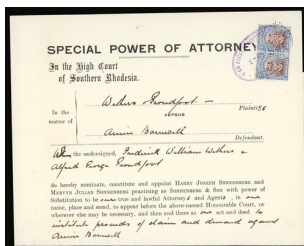 SPECIAL POWER OF ATTORNEY
In the High Court
of Southern Rhodesia.
In the
matter of
Plaintiffs
versus
Annie Barnwell
Defendant.
the undersigned, Frederick William
Alfred George Proudfoot
do hereby nominate, constitute and appoint HARRY JOSEPH SONNENBERG and
MERVYN JULIAN SONNENBERG practising as SONNENBERG & SON with power of
Substitution to be our true and lawful Attorneys and Agents, in our
name, place and stead, to appear before the above-named Honourable Court, or
wherever else may be necessary, and then and there as our act and deed to
institute proceeds of claim and demand against
Annie Barnwell